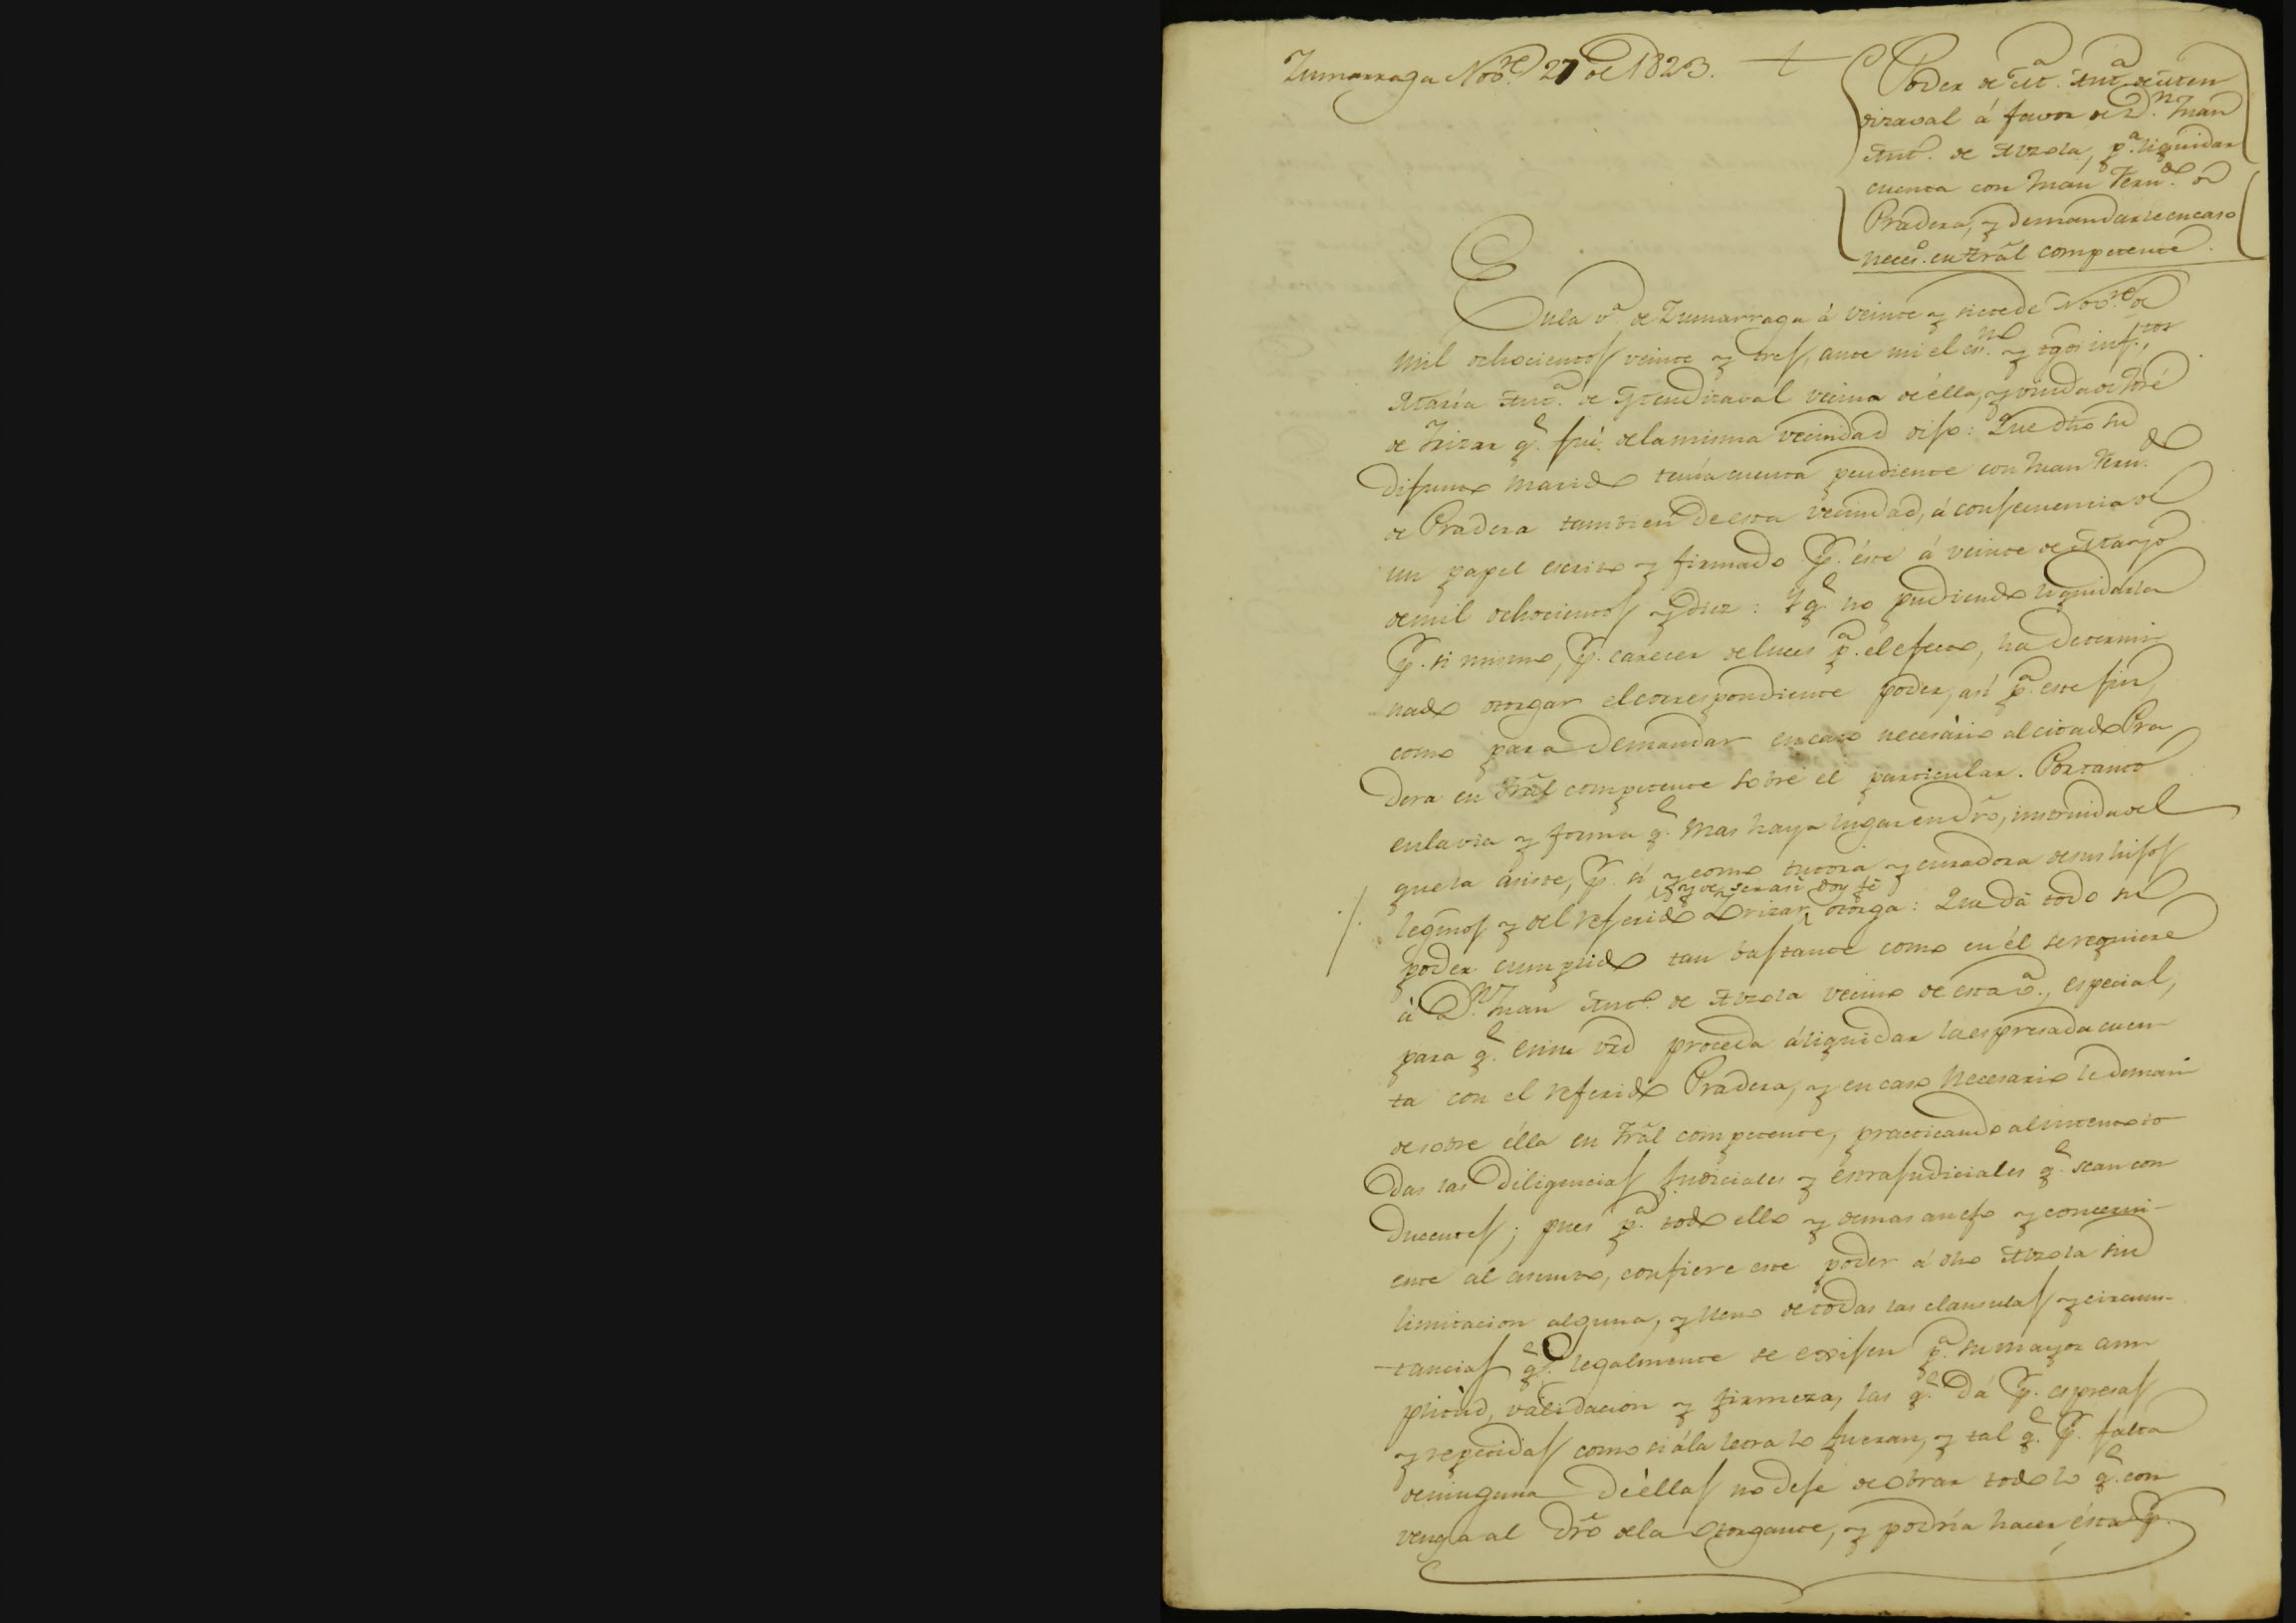 Zumarraga Nov.re 27 de 1823.
Poder de M.a Ant.a de Aten
dizaval á favor de D.n Juan
Ant.o de Alzola, p.a liquidar
cuenta con Juan Fern.do de
Pradera, y demandarle en caso
neces.o en tral competente.
En la v.a de Zumarraga á veinte y siete de Nov.re de
mil ochocientos veinte y tres, ante mi el es.no y tgos inf.tos
María Ant.a de Atendizaval vecina de élla, y viuda de José
de Irizar q.e fué de la misma vecindad dijo: Que dho su
difunto marido tenía cuenta pendiente con Juan Fern.do
de Pradera tambien de esta vecindad, á consecuencia de
un papel escrito y firmado p.r éste á veinte de Marzo
de mil ochocientos y diez: Y q.e no pudiendo liquidarla
p.r si misma, p.r carecer de luces p.a el efecto, ha determi
nado otorgar el correspondiente poder, así p.a este fin,
como para demandar en caso necesário al citado Pra
dera en tral competente sobre el particular. Por tanto
en la via y forma q.e mas haya lugar en dro, instruida del
que la asiste, p.r si y como tutora y curadora de sus hijos
y de ser así doy fé
legmos y del referido Irizar, otorga: Que dá todo su
poder cumplido tan bastante como en él se requiere
á D.n Juan Ant.o de Alzola vecino de esta v.a, especial,
para q.e en su vrd proceda á liquidar la espresada cuen
ta con el referido Pradera, y en caso necesario le deman
de sobre élla en tral competente, practicando al intento to
das las diligencias judiciales y estrajudiciales q.e sean con
ducentes; pues p.a todo ello y demas anejo y concerni-
ente al asunto, confiere este poder á dho Alzola sin
limitacion alguna, y lleno de todas las clausulas y circuns-
tancias q.e legalmente se exijen p.a su mayor am
plitud, validacion y firmeza, las q.e dá p.r espresas
y repetidas como si á la letra lo fueran, y tal q.e p.r falta
de ninguna de éllas no deje de obrar todo lo q.e con
venga al dro de la otorgante, y podría hacer ésta p.r